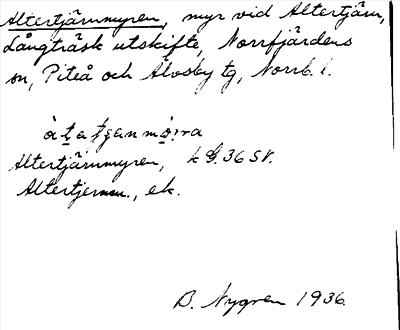 Altertjärnmyren, myr vid Altertjärn,
Långträsk utskifte, Norrfjärdens
sn, Piteå och Älvsby tg, Norrb. l.
Altertjärnmyren, k G. 36 SV.
Altertjernm., ek.
B. Nygren 1936.